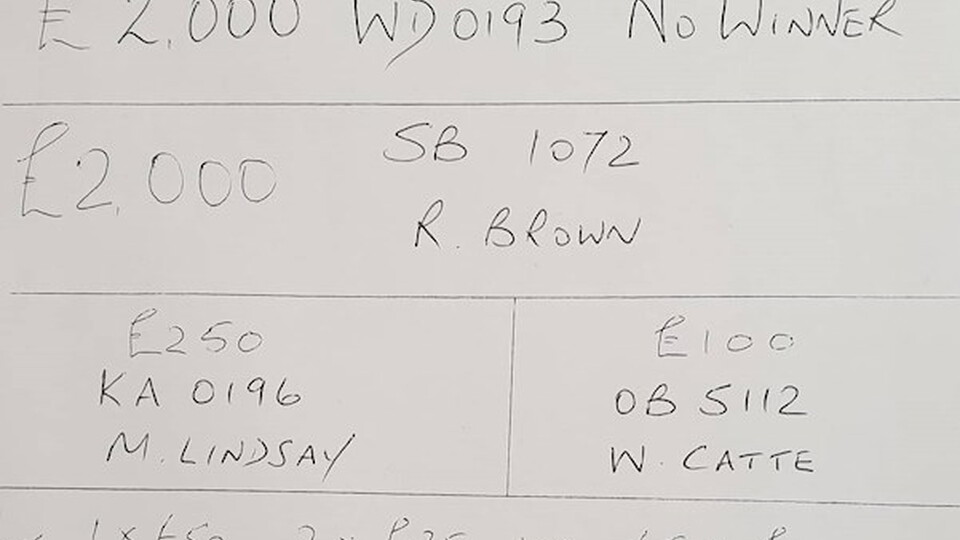 £2,000 WD0193 NO WINNER
£2,000
SB 1072
R. BROWN
£250
KA 0196
M. LINDSAY
£100
OB 5112
W. CATTE